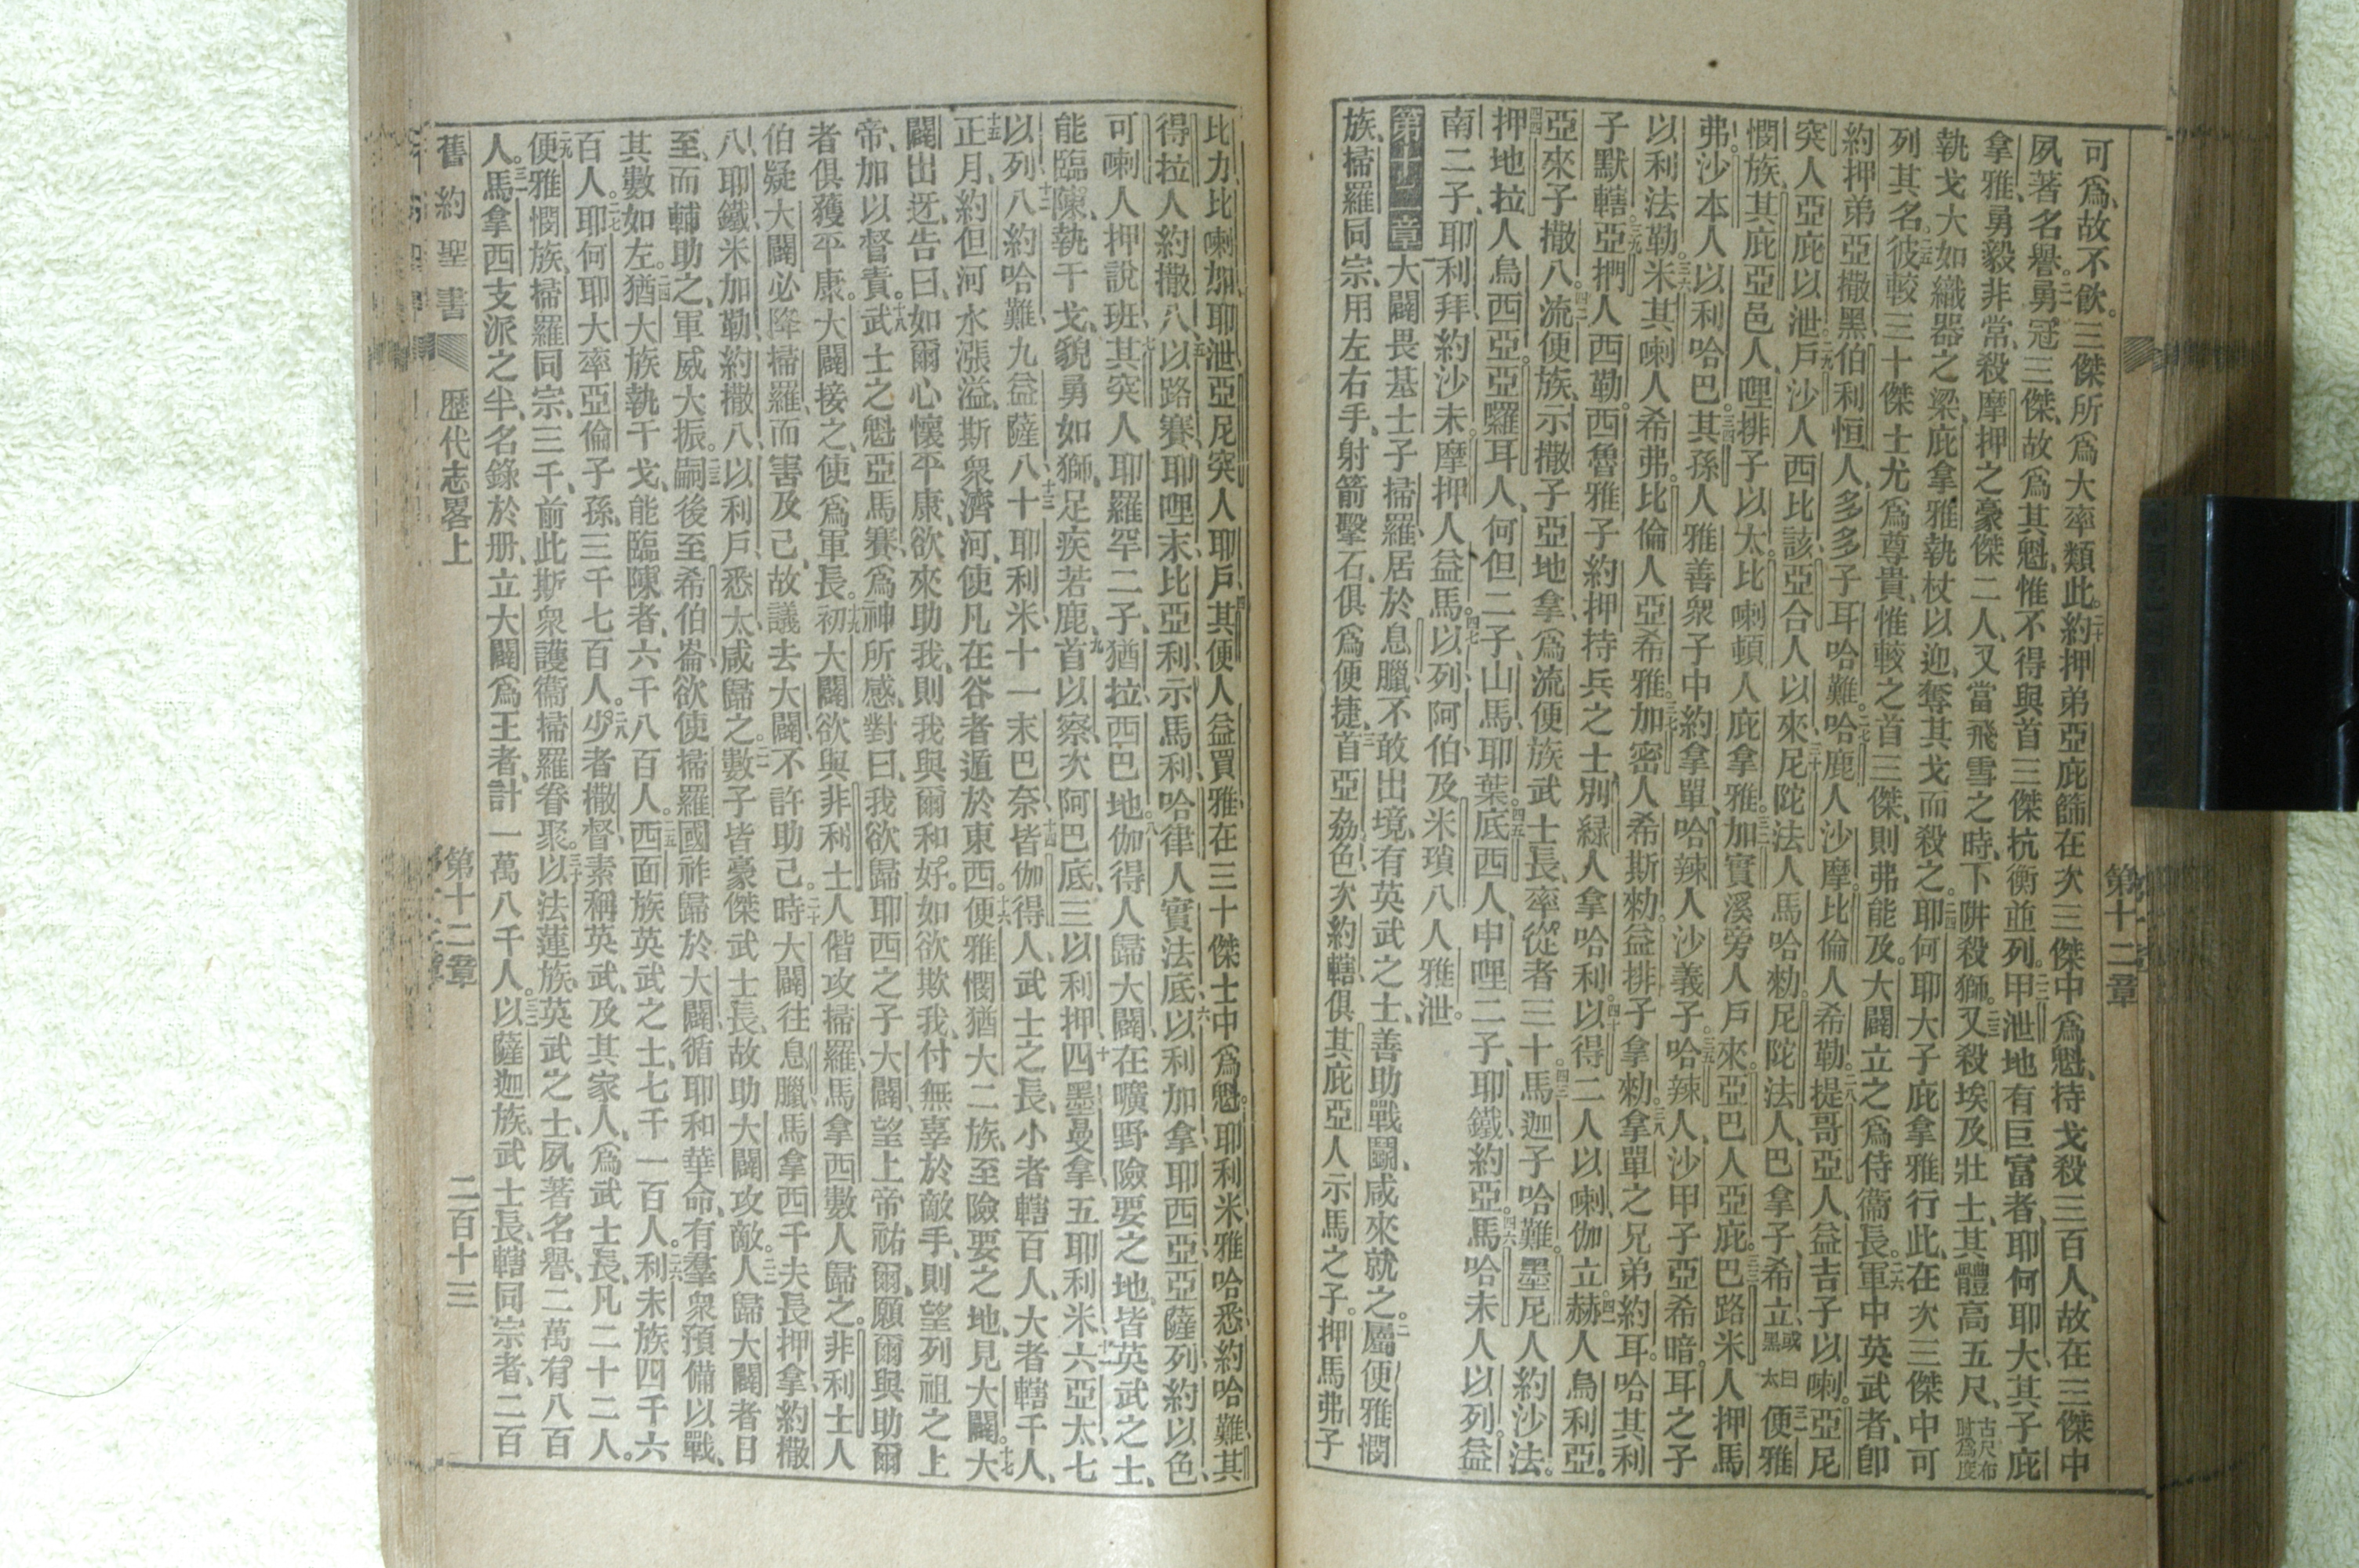 第十二章
可爲、故不飲。三傑所爲大率類此。二十約押弟亞庇篩在次三傑中爲魁、持戈殺三百人、故在三傑中
夙著名譽。二一勇冠三傑、故爲其魁、惟不得與首三傑抗衡並列。二二甲泄地有巨富者、耶何耶大其子庇
拿雅、勇毅非常、殺摩押之豪傑二人、又當飛雪之時、下阱殺獅。二三又殺埃及壯士、其體高五尺、古尺布肘爲度
執戈大如織器之梁、庇拿雅執杖以迎、奪其戈而殺之。二四耶何耶大子庇拿雅行此、在次三傑中可
列其名。二五彼較三十傑士尤爲尊貴、惟較之首三傑、則弗能及。大闢立之爲侍衞長。二六軍中英武者、卽
約押弟亞撒黑、伯利恒人、多多子耳哈難。二七哈鹿人沙摩。比倫人希勒。二八提哥亞人、益吉子以喇。亞尼
突人亞庇以泄。二九戶沙人西比該、亞合人以來。三十尼陀法人馬哈勑。尼陀法人、巴拿子、希立或曰黑太三一便雅
憫族、其庇亞邑人、哩排子以太。比喇頓人庇拿雅。三二加實溪旁人戶來。亞巴人亞庇。三三巴路米人押馬
弗。沙本人以利哈巴。三四其孫人雅善衆子中、約拿單、哈辣人沙義子。三五哈辣人、沙甲子亞希暗。耳之子
以利法勒。三六米其喇人希弗。比倫人亞希雅。三七加密人希斯勑。益排子拿勑。三八拿單之兄弟約耳。哈其利
子默轄。三九亞捫人西勒。西魯雅子約押持兵之士、別綠人拿哈利。四十以得二人以喇、伽立。四一赫人烏利亞。
亞來子撒八。四二流便族、示撒子亞地拿、爲流便族武士長、率從者三十。四三馬迦子哈難。墨尼人約沙法。
四四押地拉人烏西亞。亞囉耳人、何但二子、山馬、耶葉。四五底西人、申哩二子、耶鐵、約亞。四六馬哈未人以列。益
南二子、耶利拜、約沙未。摩押人益馬。四七以列、阿伯、及米瑣八人雅泄。
第十二章大闢畏基士子掃羅、居於息臘、不敢出境、有英武之士、善助戰鬭、咸來就之。二屬便雅憫
族、掃羅同宗、用左右手、射箭擊石、俱爲便捷、三首亞希色、次約轄、俱其庇亞人示馬之子。押馬弗子
比力、比喇加、耶泄、亞尼突人耶戶、四其便人益買雅、在三十傑士中爲魁。耶利米、雅哈悉、約哈難、其
得拉人約撒八、五以路賽、耶哩末、比亞利、示馬利、哈律人實法底、六以利加拿、耶西亞、亞薩列、約以色、
可喇人押說班、七其突人耶羅罕二子、猶拉、西巴地。八伽得人歸大闢、在曠野險要之地、皆英武之士、
能臨陳、執干戈、貌勇如獅、足疾若鹿、九首以察、次阿巴底、三以利押、十四墨曼拿、五耶利米、十一六亞太、七
以列、十二八約哈難、九益薩八、十三十耶利米、十一末巴奈、十四皆伽得人、武士之長、小者轄百人、大者轄千人、
十五正月、約但河水漲溢、斯衆濟河、使凡在谷者遁於東西。十六便雅憫猶大二族、至險要之地、見大闢。十七大
闢出迓、告曰、如爾心懷平康、欲來助我、則我與爾和好。如欲欺我、付無辜於敵手、則望列祖之上
帝、加以督責。十八武士之魁亞馬賽、爲神所感、對曰、我欲歸耶西之子大闢、望上帝祐爾、願爾與助爾
者俱獲平康。大闢接之、使爲軍長。十九初大闢欲與非利士人偕攻掃羅、馬拿西數人歸之。非利士人
伯疑大闢必降掃羅、而害及己、故議去大闢、不許助己。二十時大闢往息臘、馬拿西千夫長押拿、約撒
八、耶鐵、米加勒、約撒八、以利戶、悉太、咸歸之、二一數子皆豪傑武士長、故助大闢攻敵。二二人歸大闢者日
至、而輔助之、軍威大振。二三嗣後至希伯崙、欲使掃羅國祚歸於大闢、循耶和華命、有羣衆預備以戰、
其數如左。二四猶大族執干戈、能臨陳者、六千八百人。二五西面族英武之士、七千一百人。二六利未族四千六
百人。二七耶何耶大率亞倫子孫、三千七百人。二八少者撒督、素稱英武、及其家人、爲武士長、凡二十二人。
二九便雅憫族、掃羅同宗、三千、前此斯衆護衞掃羅眷聚。三十以法蓮族、英武之士、夙著名譽、二萬有八百
人。三一馬拿西支派之半、名錄於册、立大闢爲王者、計一萬八千人。三二以薩迦族、武士長、轄同宗者、二百
舊約聖書 歷代志畧上 第十二章 二百十三